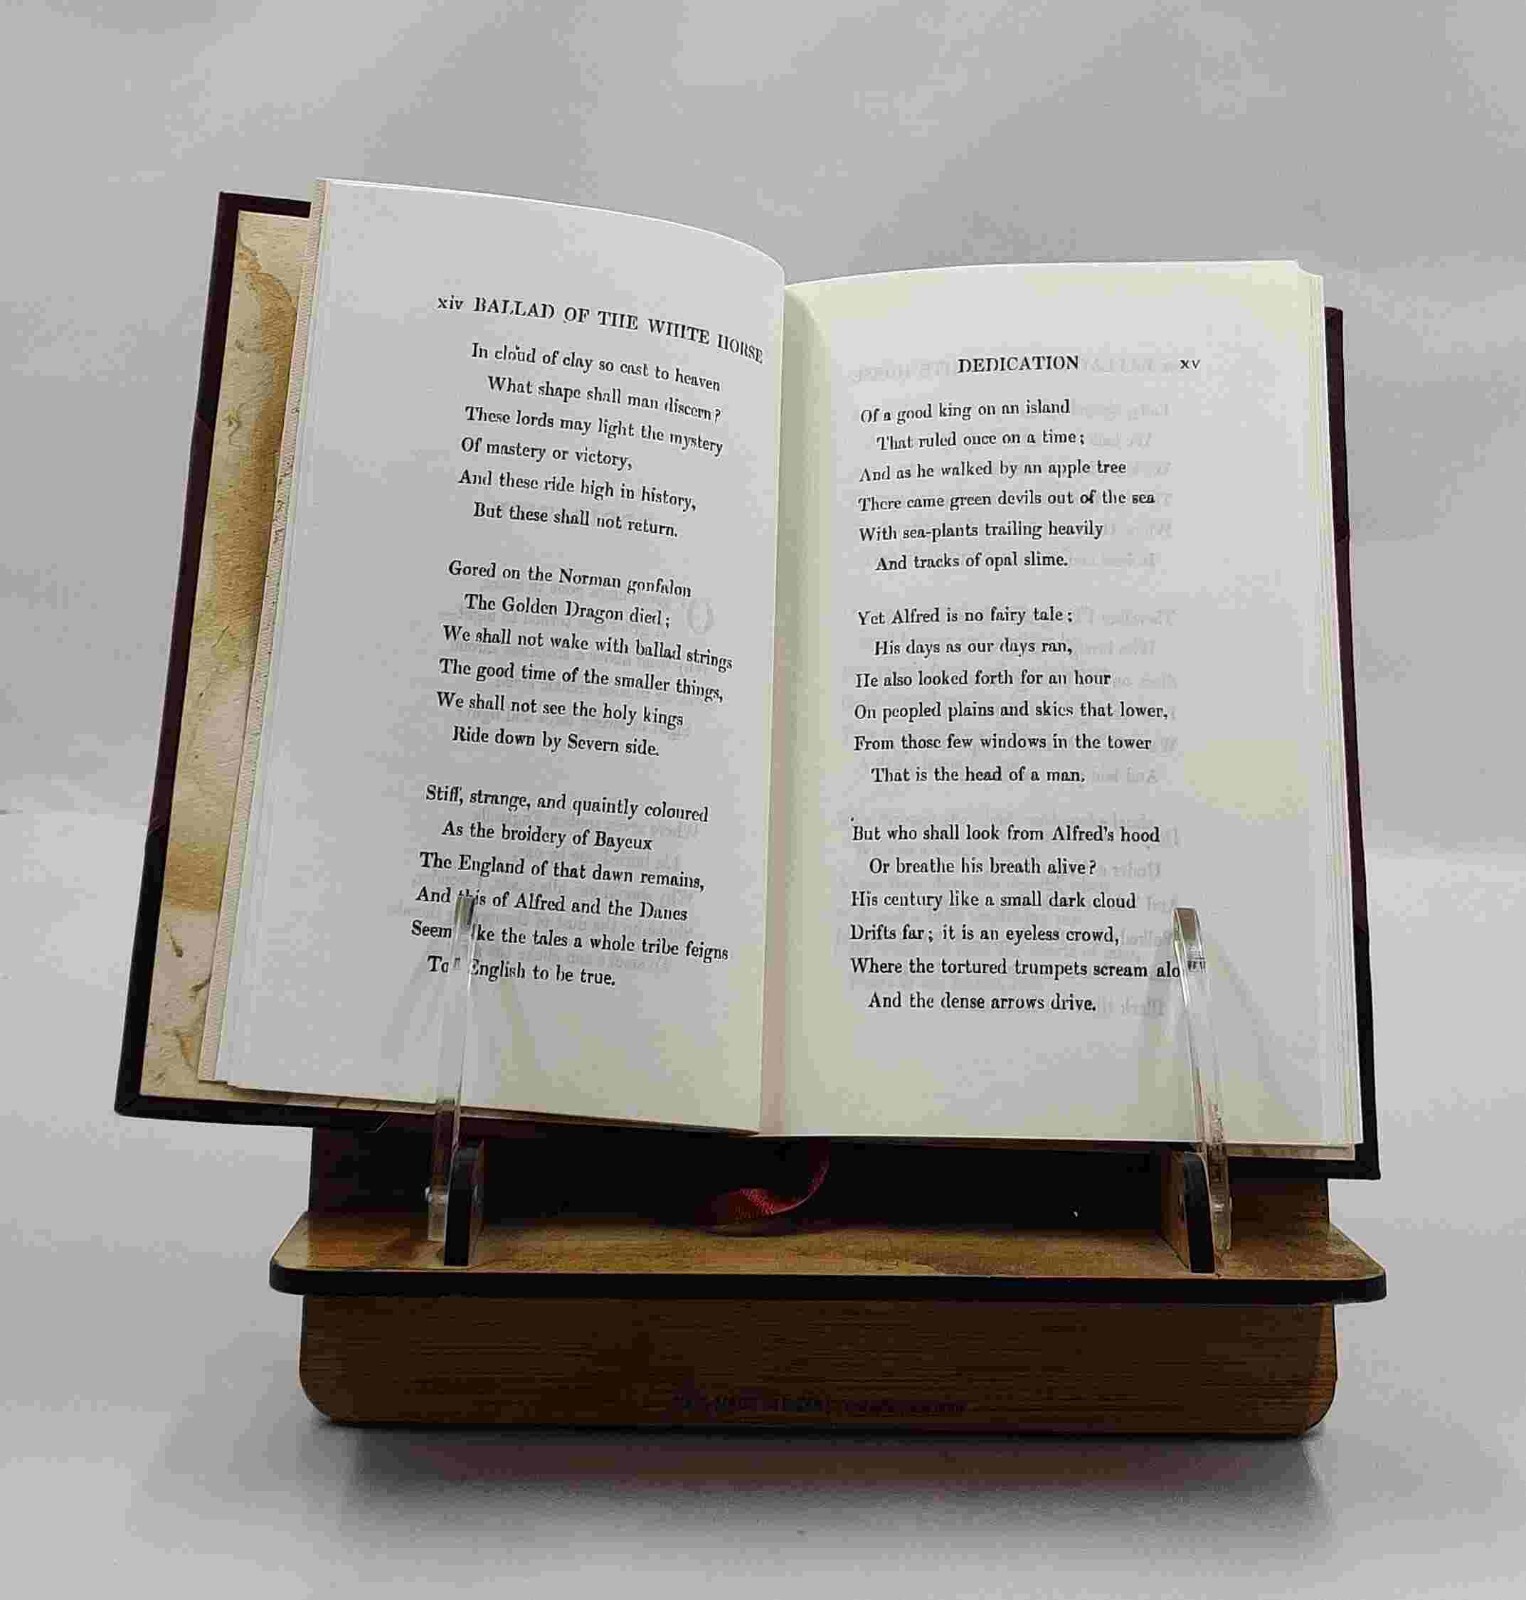 xiv BALLAD OF THE WHITE HORSE
In cloud of clay so cast to heaven
What shape shall man discern?
These lords may light the mystery
Of mastery or victory,
And these ride high in history,
But these shall not return.
Gored on the Norman gonfalon
The Golden Dragon died;
We shall not wake with ballad strings
The good time of the smaller things,
We shall not see the holy kings
Ride down by Severn side.
Stiff, strange, and quaintly coloured
As the broidery of Bayeux
The England of that dawn remains,
And this of Alfred and the Danes
Seem like the tales a whole tribe feigns
Too English to be true.
DEDICATION xv
Of a good king on an island
That ruled once on a time;
And as he walked by an apple tree
There came green devils out of the sea
With sea-plants trailing heavily
And tracks of opal slime.
Yet Alfred is no fairy tale;
His days as our days ran,
He also looked forth for an hour
On peopled plains and skies that lower,
From those few windows in the tower
That is the head of a man.
But who shall look from Alfred's hood
Or breathe his breath alive?
His century like a small dark cloud
Drifts far; it is an eyeless crowd,
Where the tortured trumpets scream
And the dense arrows drive.